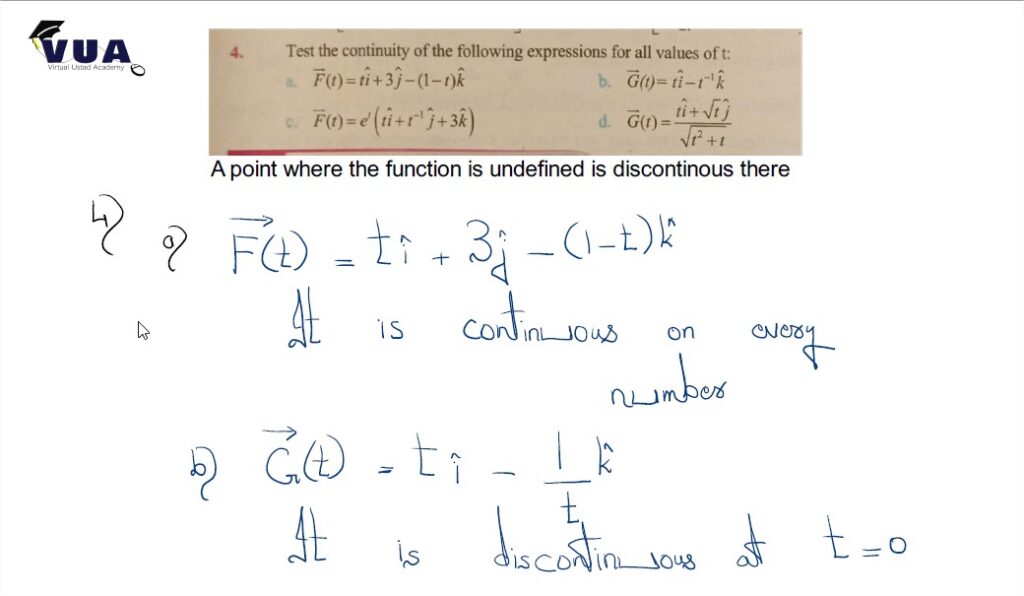 VUA
Virtual Ustad Academy
4. Test the continuity of the following expressions for all values of t:
a. F⃗(t) = tî + 3ĵ − (1−t)k̂ b. G⃗(t) = tî − t⁻¹k̂
c. F⃗(t) = eᵗ(tî + t⁻¹ĵ + 3k̂) d. G⃗(t) = (tî + √t ĵ)/√(t² + t)
A point where the function is undefined is discontinous there
4) a) F⃗(t) = tî + 3ĵ − (1−t)k̂
It is continuous on every
number
b) G⃗(t) = tî − 1/t k̂
It is discontinuous at t = 0